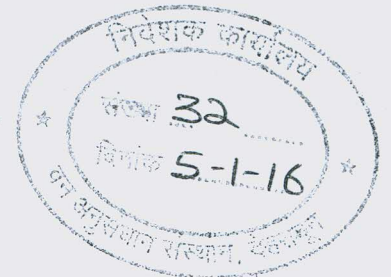 निदेशक कार्यालय
संख्या 32
दिनांक 5-1-16
वन अनुसंधान संस्थान, देहरादून